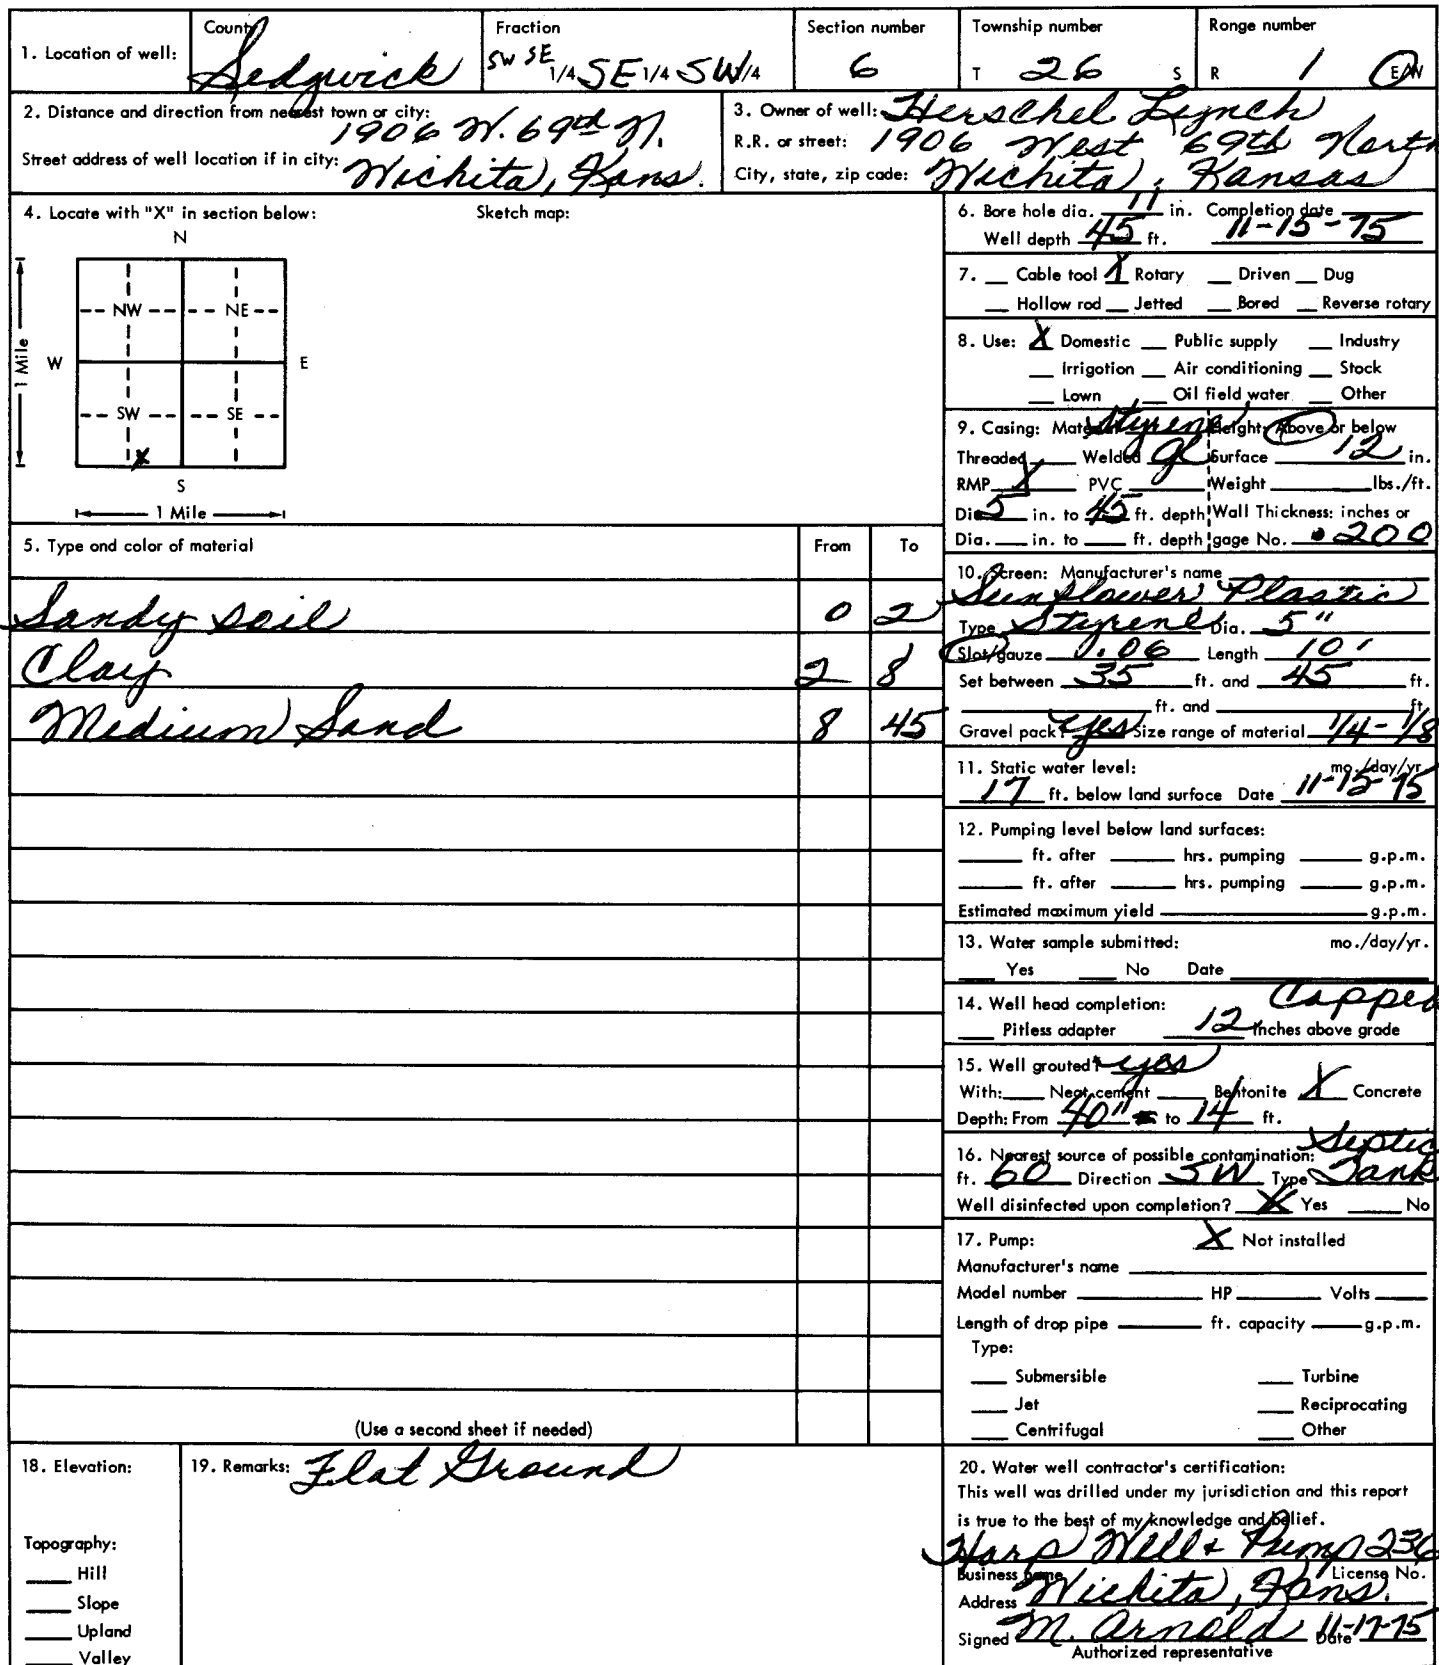 1. Location of well: County Sedgwick Fraction SW SE 1/4 SE 1/4 SW 1/4 Section number 6 Township number T 26 S Range number R 1 E/W
2. Distance and direction from nearest town or city: 1906 W. 69th N.
Street address of well location if in city: Wichita, Kans.
3. Owner of well: Herschel Lynch
R.R. or street: 1906 West 69th North
City, state, zip code: Wichita, Kansas
4. Locate with "X" in section below: Sketch map:
N
NW NE
W E
1 Mile
SW SE
X
S
1 Mile
5. Type and color of material From To
Sandy soil 0 2
Clay 2 8
Medium Sand 8 45
(Use a second sheet if needed)
6. Bore hole dia. 11 in. Completion date
Well depth 45 ft. 11-15-75
7. Cable tool X Rotary Driven Dug
Hollow rod Jetted Bored Reverse rotary
8. Use: X Domestic Public supply Industry
Irrigation Air conditioning Stock
Lawn Oil field water Other
9. Casing: Material Styrene Height: Above or below
Threaded Welded Gl Surface 12 in.
RMP X PVC Weight lbs./ft.
Dia. 5 in. to 45 ft. depth Wall Thickness: inches or
Dia. in. to ft. depth gage No. .200
10. Screen: Manufacturer's name
Sunflower Plastic
Type Styrene Dia. 5"
Slot/gauze .06 Length 10'
Set between 35 ft. and 45 ft.
ft. and ft.
Gravel pack? yes Size range of material 1/4-1/8
11. Static water level: mo./day/yr.
17 ft. below land surface Date 11-15-75
12. Pumping level below land surfaces:
ft. after hrs. pumping g.p.m.
ft. after hrs. pumping g.p.m.
Estimated maximum yield g.p.m.
13. Water sample submitted: mo./day/yr.
Yes No Date
14. Well head completion: Capped
Pitless adapter 12 Inches above grade
15. Well grouted? yes
With: Neat cement Bentonite X Concrete
Depth: From 40" to 14 ft.
16. Nearest source of possible contamination: Septic
ft. 60 Direction SW Type Tank
Well disinfected upon completion? X Yes No
17. Pump: X Not installed
Manufacturer's name
Model number HP Volts
Length of drop pipe ft. capacity g.p.m.
Type:
Submersible Turbine
Jet Reciprocating
Centrifugal Other
18. Elevation:
Topography:
Hill
Slope
Upland
Valley
19. Remarks: Flat Ground
20. Water well contractor's certification:
This well was drilled under my jurisdiction and this report
is true to the best of my knowledge and belief.
Harp Well & Pump 236
Business name License No.
Address Wichita, Kans.
Signed M. Arnold Date 11-17-75
Authorized representative